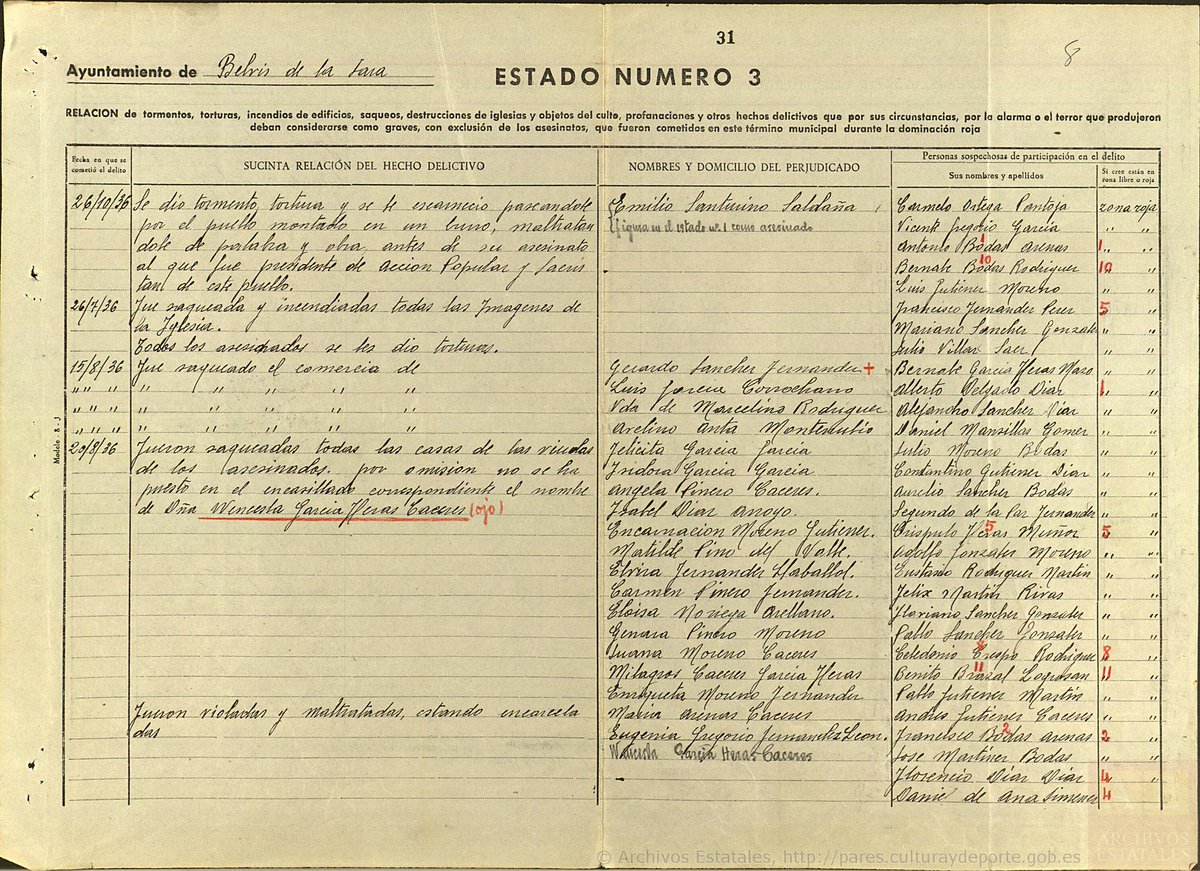 31
8
Ayuntamiento de Belvis de la Jara
ESTADO NUMERO 3
RELACION de tormentos, torturas, incendios de edificios, saqueos, destrucciones de iglesias y objetos del culto, profanaciones y otros hechos delictivos que por sus circunstancias, por la alarma o el terror que produjeron
deban considerarse como graves, con exclusión de los asesinatos, que fueron cometidos en este término municipal durante la dominación roja
Fecha en que se cometió el delito
SUCINTA RELACIÓN DEL HECHO DELICTIVO
NOMBRES Y DOMICILIO DEL PERJUDICADO
Personas sospechosas de participación en el delito
Sus nombres y apellidos
Si cree están en zona libre o roja
26/10/36 Se dio tormento, tortura y se le escarnecio paseandole Emilio Santurino Saldaña Carmelo Ortega Pantoja zona roja
por el pueblo montado en un burro, maltratan (figura en el estado nº 1 como asesinado Vicente Gregorio Garcia " "
dole de palabra y obra antes de su asesinato Antonio Bodas Arenas 1 " "
al que fue presidente de Accion Popular y Sacris Bernabe Bodas Rodriguez 10 "
tan de este pueblo. Luis Gutierrez Moreno " "
26/7/36 Fue saqueada y incendiadas todas las Imagenes de Francisco Fernandez Perez 5 "
la Iglesia. Mariano Sanchez Gonzalez " "
Todos los asesinados se les dio torturas. Julio Villar Saez " "
15/8/36 Fue saqueado el comercio de Gerardo Sanchez Fernandez + Bernabe Garcia Heras Mazo " "
" " " " " " " Luis Garcia Corrochano Alberto Delgado Diaz 1 "
" " " " " " " Vda de Marcelino Rodriguez Alejandro Sanchez Diaz " "
" " " " " " " Avelino Anta Daniel Mansillas Gomez " "
20/8/36 Fueron saqueadas todas las casas de las viudas Felicita Garcia Garcia Julio Moreno Bodas " "
de los asesinados. por omision no se ha Isidora Garcia Garcia Constantino Gutierrez Diaz " "
puesto en el encasillado correspondiente el nombre Angela Pinero Caceres. Aurelio Sanchez Bodas " "
de Dña Wencesta Garcia Heras Caceres (ojo) Isabel Diaz Arroyo. Segundo de la Paz Fernandez " "
Encarnacion Moreno Gutierrez. Crispulo Heras Muñoz 5 5 "
Matilde Pino del Valle. Adolfo Gonzalez Moreno " "
Elvira Fernandez Eustasio Rodriguez Martin " "
Carmen Pinero Fernandez. Felix Martin Rivas " "
Eloisa Noriega Arellano. Floriano Sanchez Gonzalez " "
Genara Pinero Moreno Pablo Sanchez Gonzalez " "
Juana Moreno Caceres Celedonio Crespo Rodriguez 8 "
Milagros Caceres Garcia Heras Benito Brazal Logrosan 11 11 "
Enriqueta Moreno Fernandez Pablo Gutierrez Martin " "
Fueron violadas y maltratadas, estando encarcela Maria Arenas Caceres Andres Gutierrez Caceres " "
das Eugenia Gregorio Fernandez Leon. Francisco Bodas Arenas 2 2 "
Garcia Heras Caceres Jose Martinez Bodas " "
Florencio Diaz Diaz 4 "
Daniel de Ana Jimenez 4 "
Modelo - 8 - J
ARCHIVOS ESTATALES
© Archivos Estatales, http://pares.culturaydeporte.gob.es